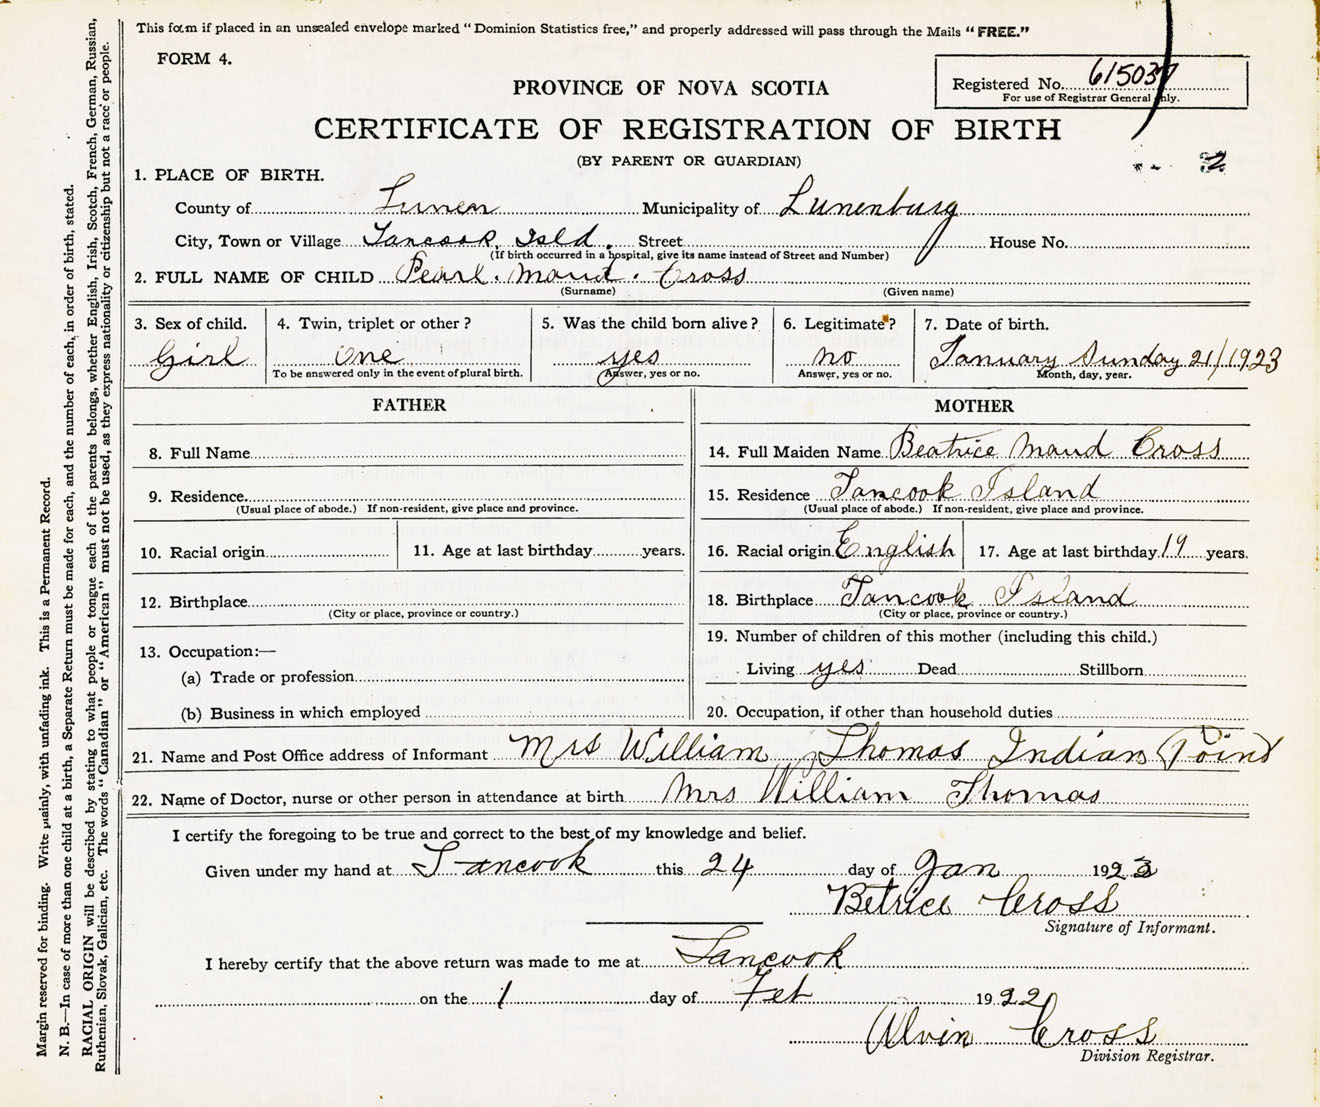 This form if placed in an unsealed envelope marked "Dominion Statistics free," and properly addressed will pass through the Mails "FREE."
FORM 4.
Registered No. 615037
For use of Registrar General only.
PROVINCE OF NOVA SCOTIA
CERTIFICATE OF REGISTRATION OF BIRTH
(BY PARENT OR GUARDIAN)
2
1. PLACE OF BIRTH.
County of Lunen Municipality of Lunenburg
City, Town or Village Tancook Isld. Street House No.
(If birth occurred in a hospital, give its name instead of Street and Number)
2. FULL NAME OF CHILD Pearl. Maud. Cross
(Surname) (Given name)
3. Sex of child. 4. Twin, triplet or other? 5. Was the child born alive? 6. Legitimate? 7. Date of birth.
Girl one yes no January Sunday 21/1923
To be answered only in the event of plural birth. Answer, yes or no. Answer, yes or no. Month, day, year.
FATHER
8. Full Name
9. Residence
(Usual place of abode.) If non-resident, give place and province.
10. Racial origin 11. Age at last birthday years.
12. Birthplace
(City or place, province or country.)
13. Occupation:—
(a) Trade or profession
(b) Business in which employed
MOTHER
14. Full Maiden Name Beatrice Maud Cross
15. Residence Tancook Island
(Usual place of abode.) If non-resident, give place and province.
16. Racial origin English 17. Age at last birthday 19 years.
18. Birthplace Tancook Island
(City or place, province or country.)
19. Number of children of this mother (including this child.)
Living yes Dead Stillborn
20. Occupation, if other than household duties
21. Name and Post Office address of Informant Mrs William Thomas Indian Point
22. Name of Doctor, nurse or other person in attendance at birth Mrs William Thomas
I certify the foregoing to be true and correct to the best of my knowledge and belief.
Given under my hand at Tancook this 24 day of Jan 1923
Betrice Cross
Signature of Informant.
I hereby certify that the above return was made to me at Tancook
on the 1 day of Feb 1922
Alvin Cross
Division Registrar.
Margin reserved for binding. Write plainly, with unfading ink. This is a Permanent Record.
N. B.—In case of more than one child at a birth, a Separate Return must be made for each, and the number of each, in order of birth, stated.
RACIAL ORIGIN will be described by stating to what people or tongue each of the parents belongs, whether English, Irish, Scotch, French, German, Russian,
Ruthenian, Slovak, Galician, etc. The words "Canadian" or "American" must not be used, as they express nationality or citizenship but not a race or people.